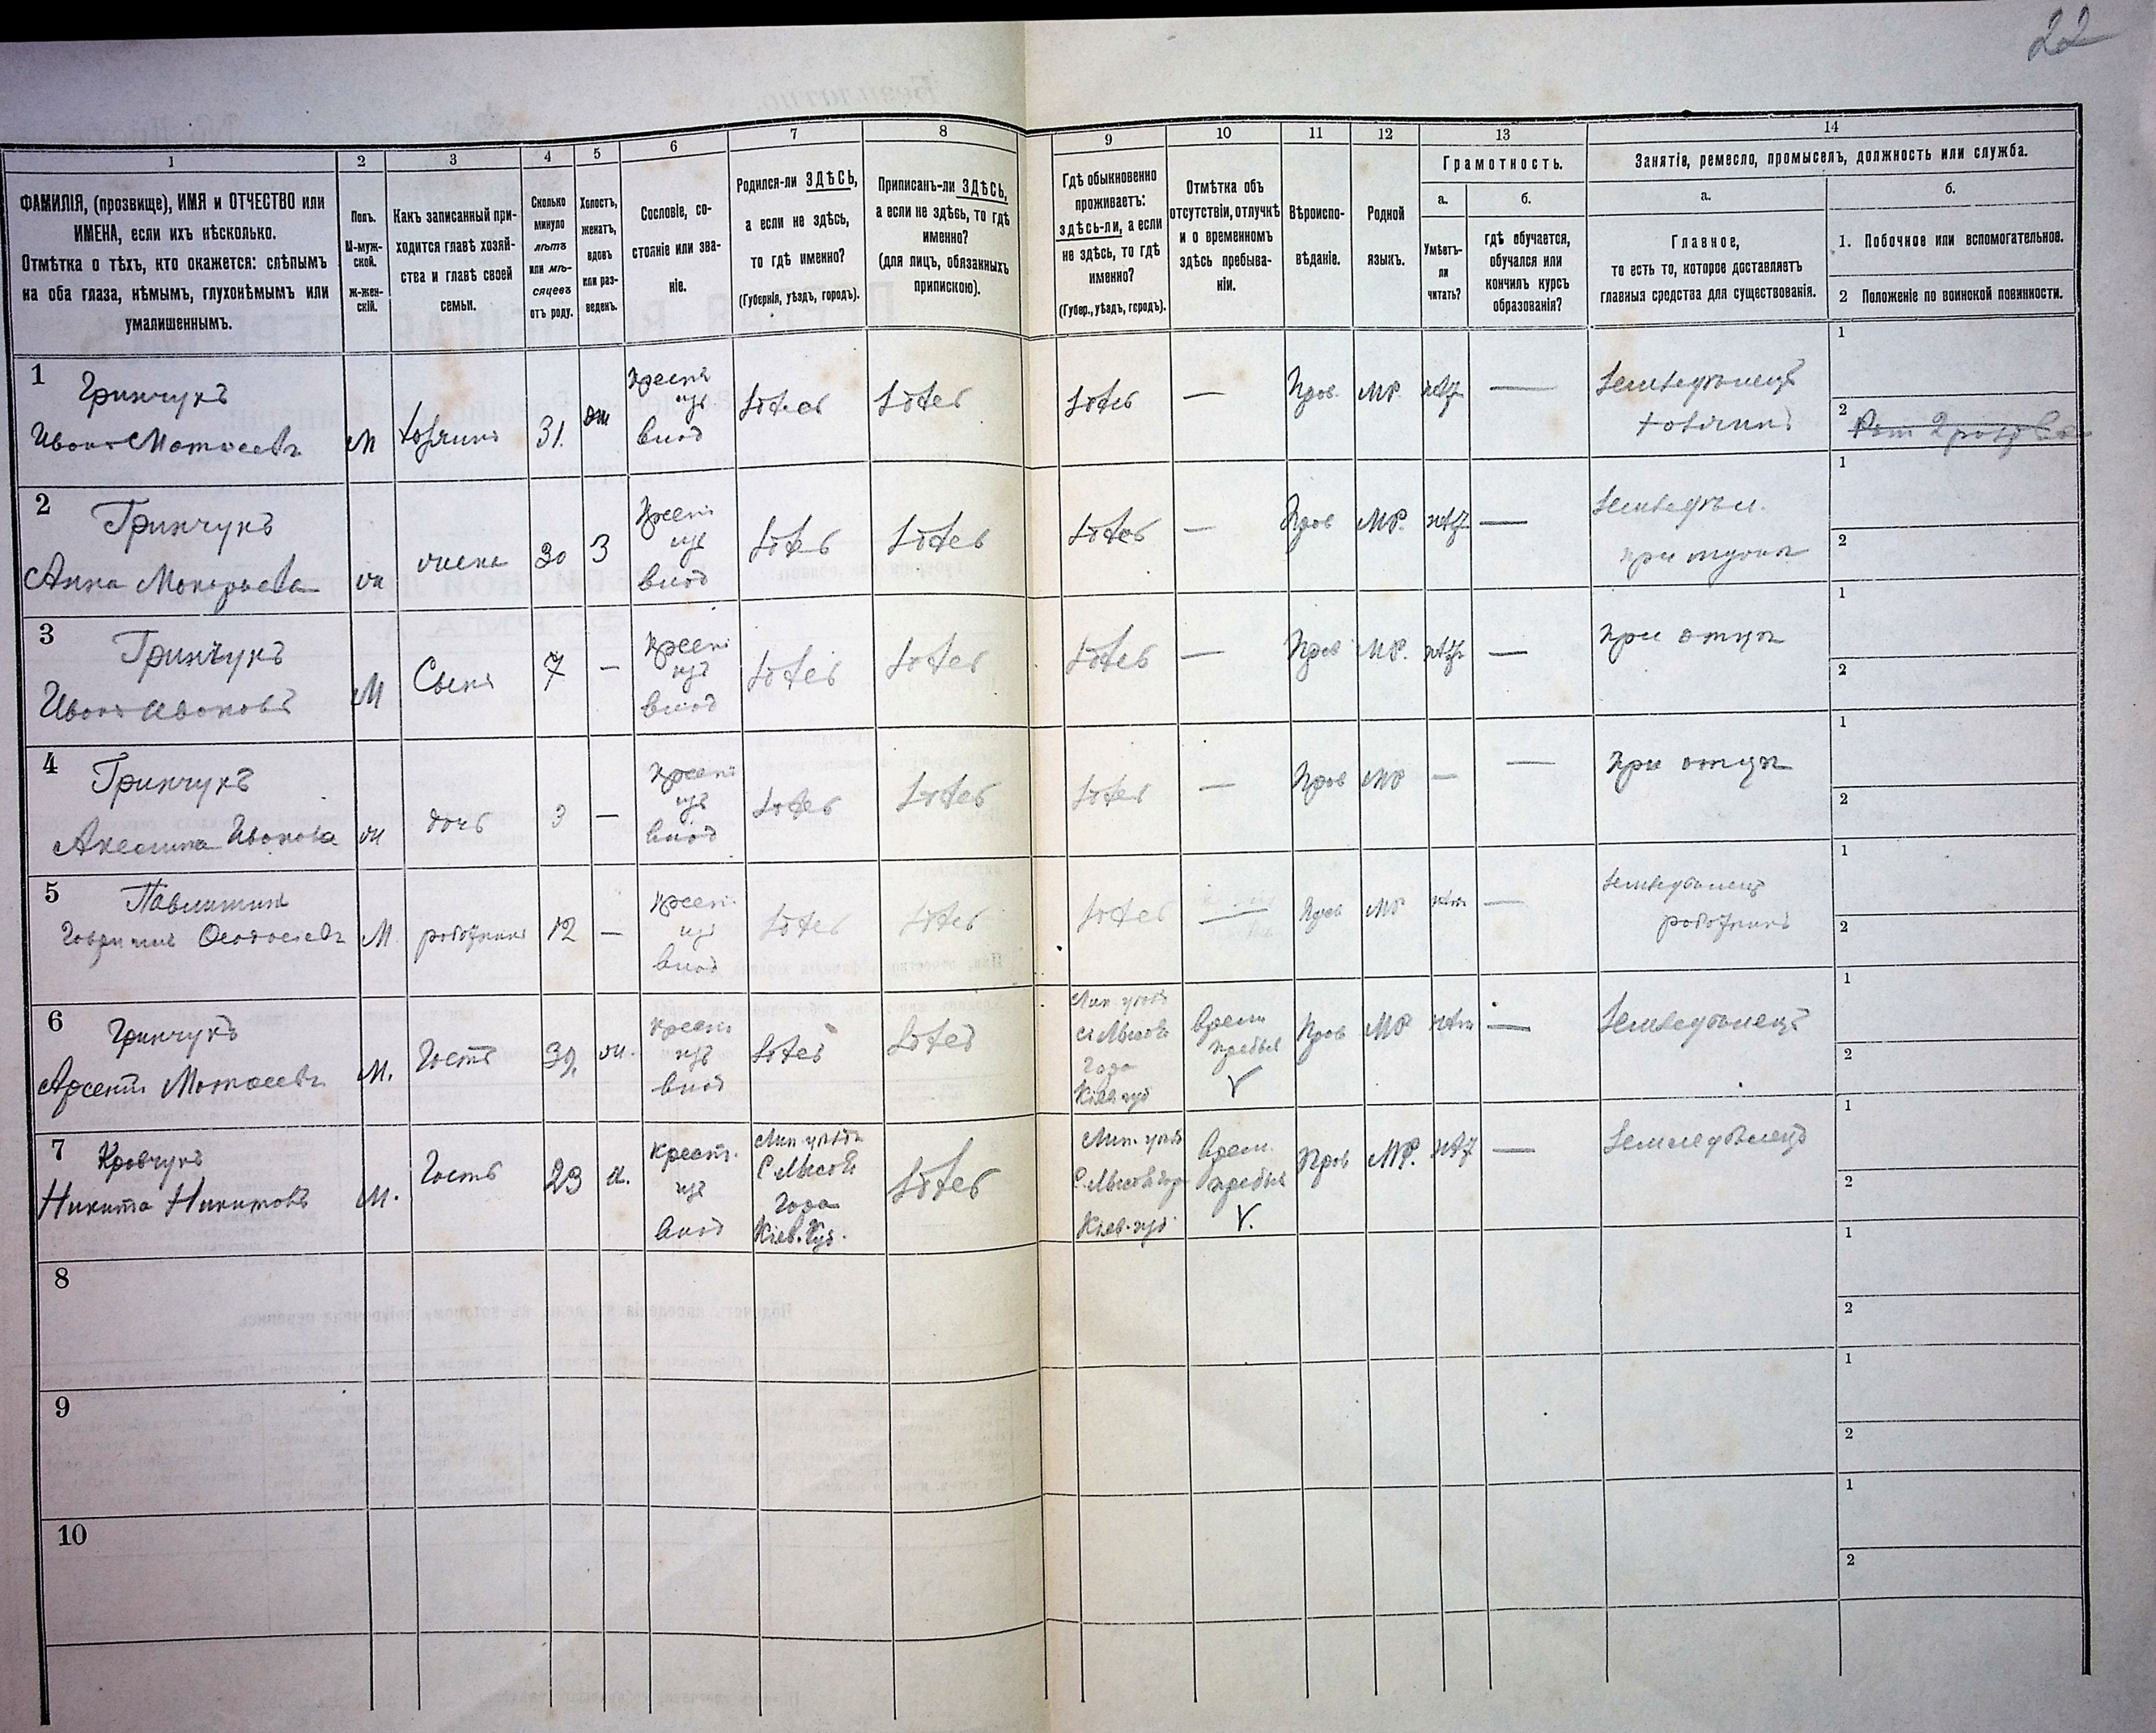 22
1
2
3
4
5
6
7
8
9
10
11
12
13
14
ФАМИЛІЯ, (прозвище), ИМЯ и ОТЧЕСТВО или
ИМЕНА, если ихъ нѣсколько.
Отмѣтка о тѣхъ, кто окажется: слѣпымъ
на оба глаза, нѣмымъ, глухонѣмымъ или
умалишеннымъ.
Полъ.
М-муж-
ской.
Ж-жен-
скій.
Какъ записанный при-
ходится главѣ хозяй-
ства и главѣ своей
семьи.
Сколько
минуло
лѣтъ
или мѣ-
сяцевъ
отъ роду.
Холостъ,
женатъ,
вдовъ
или раз-
веденъ.
Сословіе, со-
стояніе или зва-
ніе.
Родился-ли ЗДѢСЬ,
а если не здѣсь,
то гдѣ именно?
(Губернія, уѣздъ, городъ).
Приписанъ-ли ЗДѢСЬ,
а если не здѣсь, то гдѣ
именно?
(для лицъ, обязанныхъ
припискою).
Гдѣ обыкновенно
проживаетъ:
здѣсь-ли, а если
не здѣсь, то гдѣ
именно?
(Губер., уѣздъ, городъ).
Отмѣтка объ
отсутствіи, отлучкѣ
и о временномъ
здѣсь пребыва-
ніи.
Вѣроиспо-
вѣданіе.
Родной
языкъ.
Грамотность.
а.
б.
Умѣетъ-
ли
читать?
гдѣ обучается,
обучался или
кончилъ курсъ
образованія?
Занятіе, ремесло, промыселъ, должность или служба.
а.
б.
Главное,
то есть то, которое доставляетъ
главныя средства для существованія.
1. Побочное или вспомогательное.
2 Положеніе по воинской повинности.
1 Гринчукъ
Иванъ Матвеевъ М хозяинъ 31. жн крест. изъ влад здесь здесь здесь — Прав. МР. нѣтъ — Земледѣлецъ хозяинъ 1 2
2 Гринчукъ
Анна Макарьева ж жена 30 З крест. изъ влад здесь здесь здесь — Прав МР. нѣтъ — Земледѣл. при мужѣ 1 2
3 Гринчукъ
Иванъ Ивановъ М Сынъ 7 — крест. изъ влад здесь здесь здесь — Прав МР. нѣтъ — при отцѣ 1 2
4 Гринчукъ
Ивановa ж дочь 3 — крест. изъ влад здесь здесь здесь — Прав МР — — при отцѣ 1 2
5
М работникъ 12 — крест. изъ влад здесь здесь здесь — Прав МР нѣтъ — Земледѣлецъ работникъ 1 2
6 Гринчукъ
Арсентій Матвеевъ М. Гость 39. ж. крест. изъ влад здесь здесь Лип. уѣзд Кіев. губ врем. пребыв V Прав МР нѣтъ — Земледѣлецъ 1 2
7 Кравчукъ
Никита Никитовъ М. Гость 23 ж. крест. изъ влад Лип. уѣзда Кіев. губ. здесь Лип. уѣзд Кіев. губ. Врем. пребыв V. Прав МР. нѣтъ — Земледѣлецъ 1 2
8 1 2
9 1 2
10 1 2